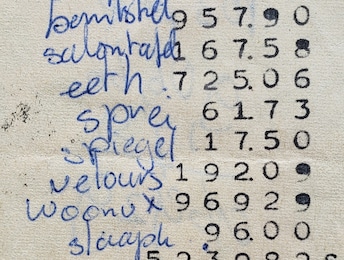 bankstel 957.90
salontafel 167.58
eeth. 725.06
sprei 61.73
spiegel 17.50
velours 192.09
woonv x 969.29
slaapk. 96.00